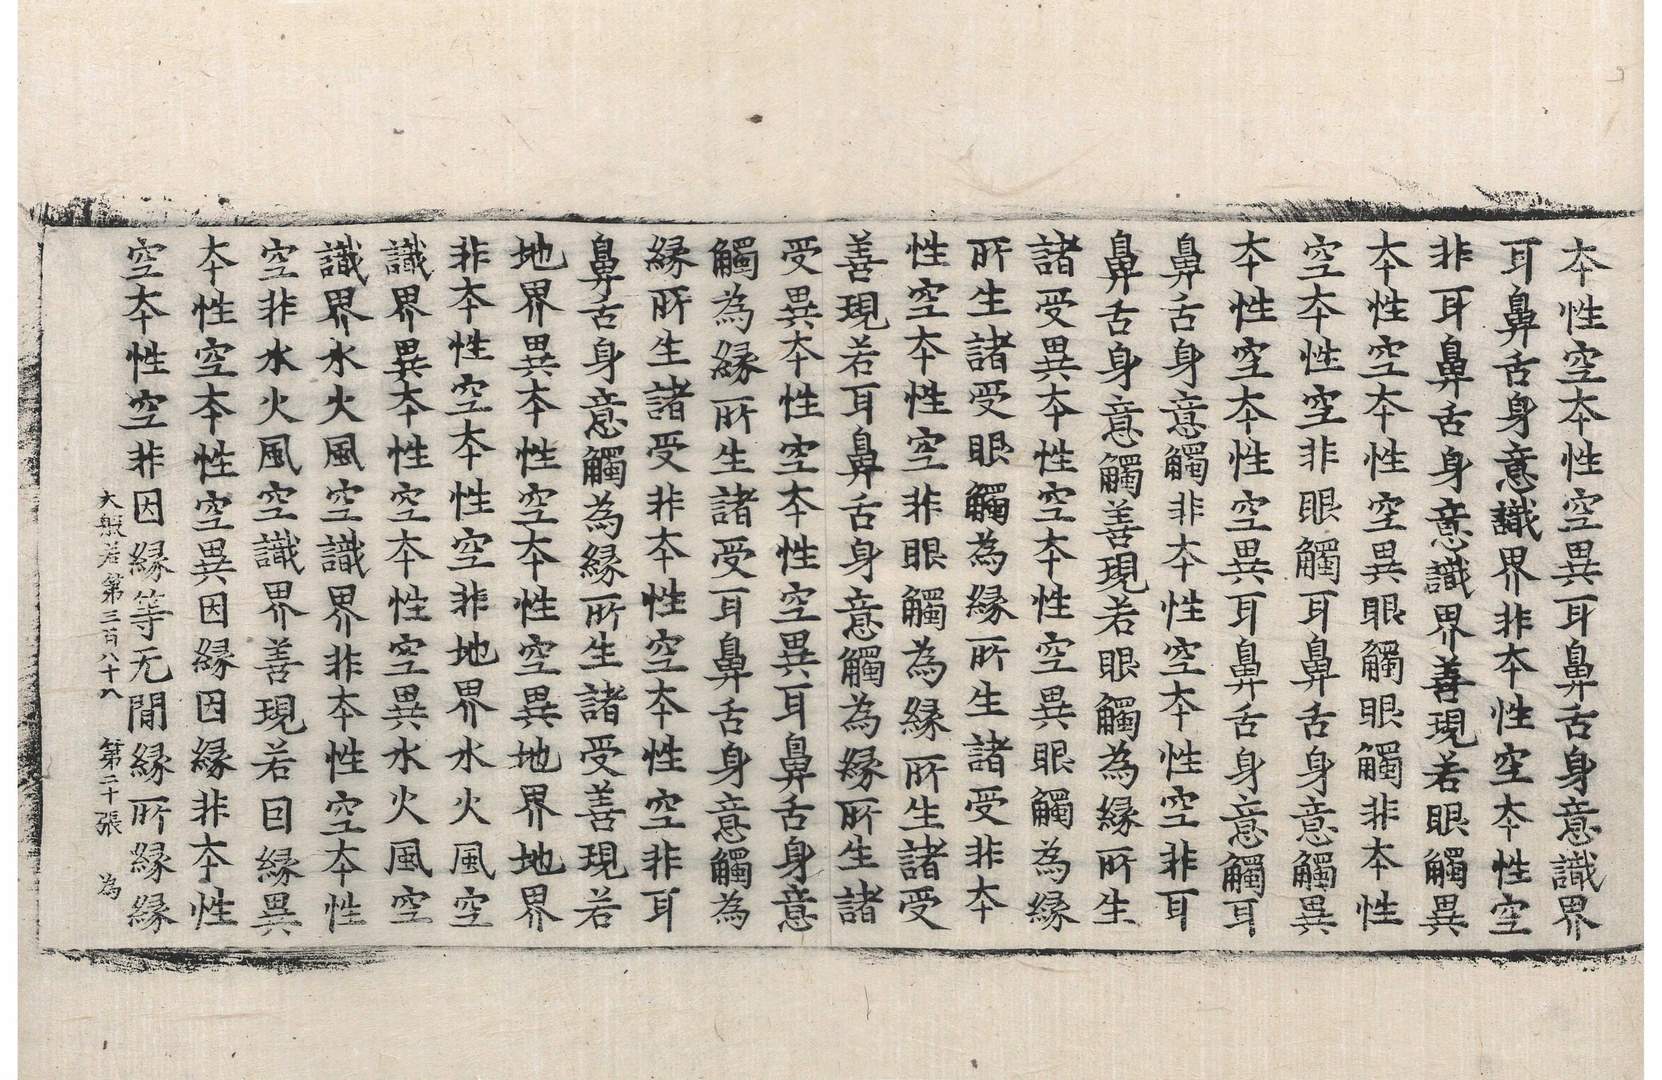 夲性空夲性空異耳鼻舌身意識界
耳鼻舌身意識界非夲性空夲性空
非耳鼻舌身意識界善現若眼觸異
夲性空夲性空異眼觸眼觸非夲性
空夲性空非眼觸耳鼻舌身意觸異
夲性空夲性空異耳鼻舌身意觸耳
鼻舌身意觸非夲性空夲性空非耳
鼻舌身意觸善現若眼觸為縁所生
諸受異夲性空夲性空異眼觸為縁
所生諸受眼觸為縁所生諸受非夲
性空夲性空非眼觸為縁所生諸受
善現若耳鼻舌身意觸為縁所生諸
受異夲性空夲性空異耳鼻舌身意
觸為縁所生諸受耳鼻舌身意觸為
縁所生諸受非夲性空夲性空非耳
鼻舌身意觸為縁所生諸受善現若
地界異夲性空夲性空異地界地界
非夲性空夲性空非地界水火風空
識界異夲性空夲性空異水火風空
識界水火風空識界非夲性空夲性
空非水火風空識界善現若因縁異
夲性空夲性空異因縁因縁非夲性
空夲性空非因縁等无間縁所縁縁
大般若第三百八十八 第二十張 為